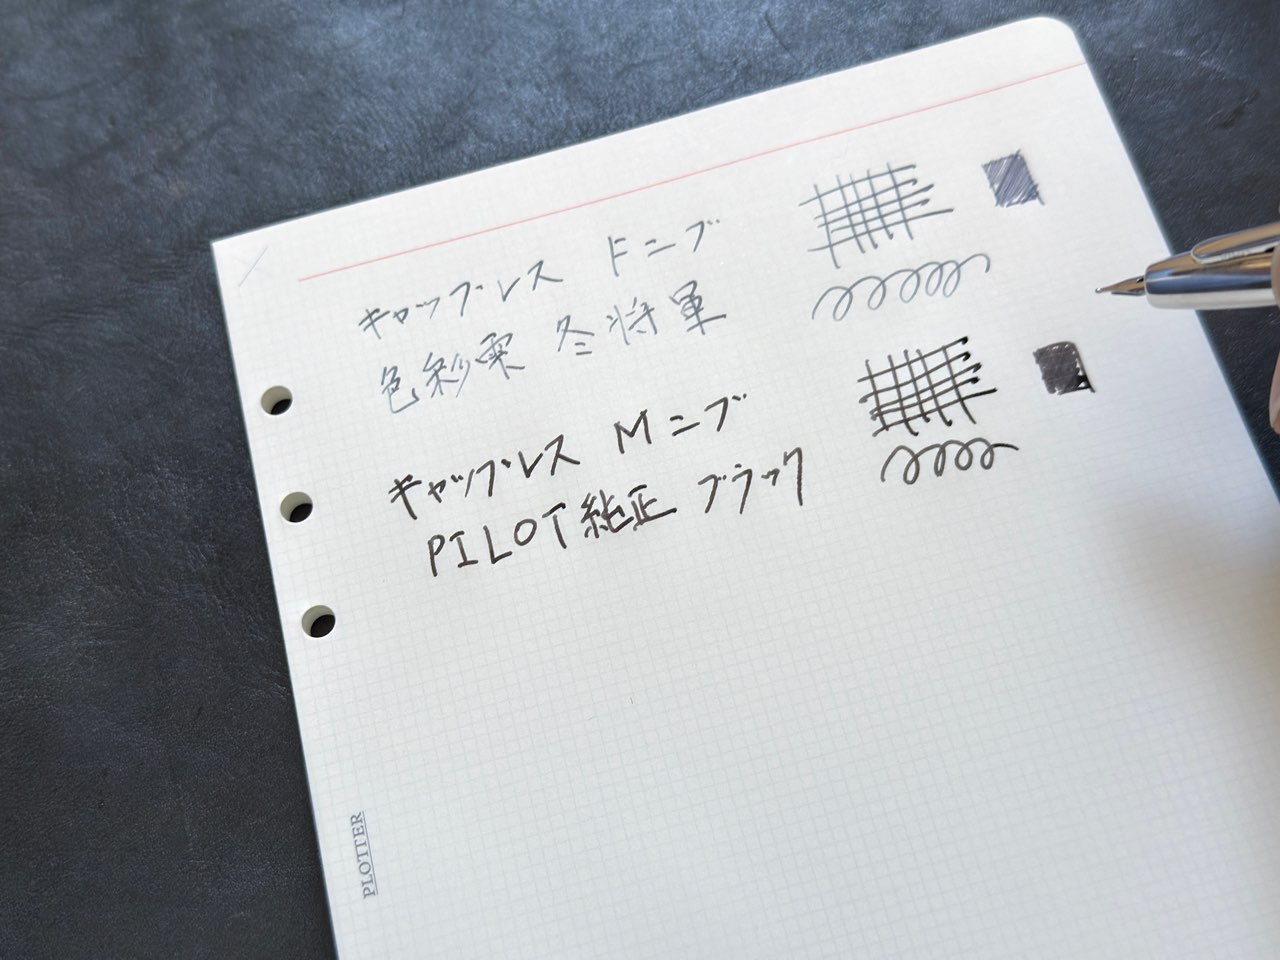 キャップレス Fニブ
色彩雫 冬将軍
キャップレス Mニブ
PILOT純正 ブラック
PLOTTER